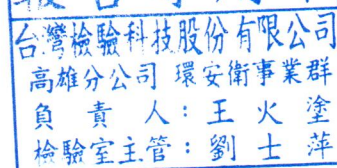 台灣檢驗科技股份有限公司
高雄分公司 環安衛事業群
負責人：王火塗
檢驗室主管：劉士萍